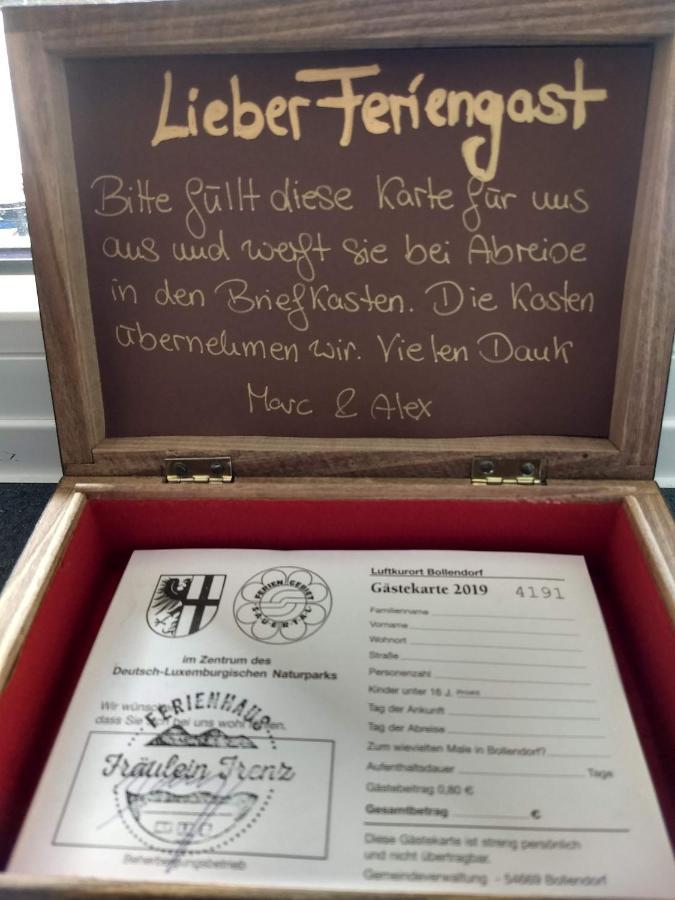 Lieber Feriengast
Bitte füllt diese Karte für uns
aus und werft sie bei Abreise
in den Briefkasten. Die Kosten
übernehmen wir. Vielen Dank
Marc & Alex
FERIENGEBIET
SAUERTAL
im Zentrum des
Deutsch-Luxemburgischen Naturparks
Wir wünschen,
dass Sie sich bei uns wohl fühlen.
FERIENHAUS
Fräulein Trenz
Beherbergungsbetrieb
Luftkurort Bollendorf
Gästekarte 2019 4191
Familienname
Vorname
Wohnort
Straße
Personenzahl
Kinder unter 16 J.
Tag der Ankunft
Tag der Abreise
Zum wievielten Male in Bollendorf?
Aufenthaltsdauer Tage
Gästebeitrag 0,80 €
Gesamtbetrag €
Diese Gästekarte ist streng persönlich
und nicht übertragbar.
Gemeindeverwaltung - 54669 Bollendorf